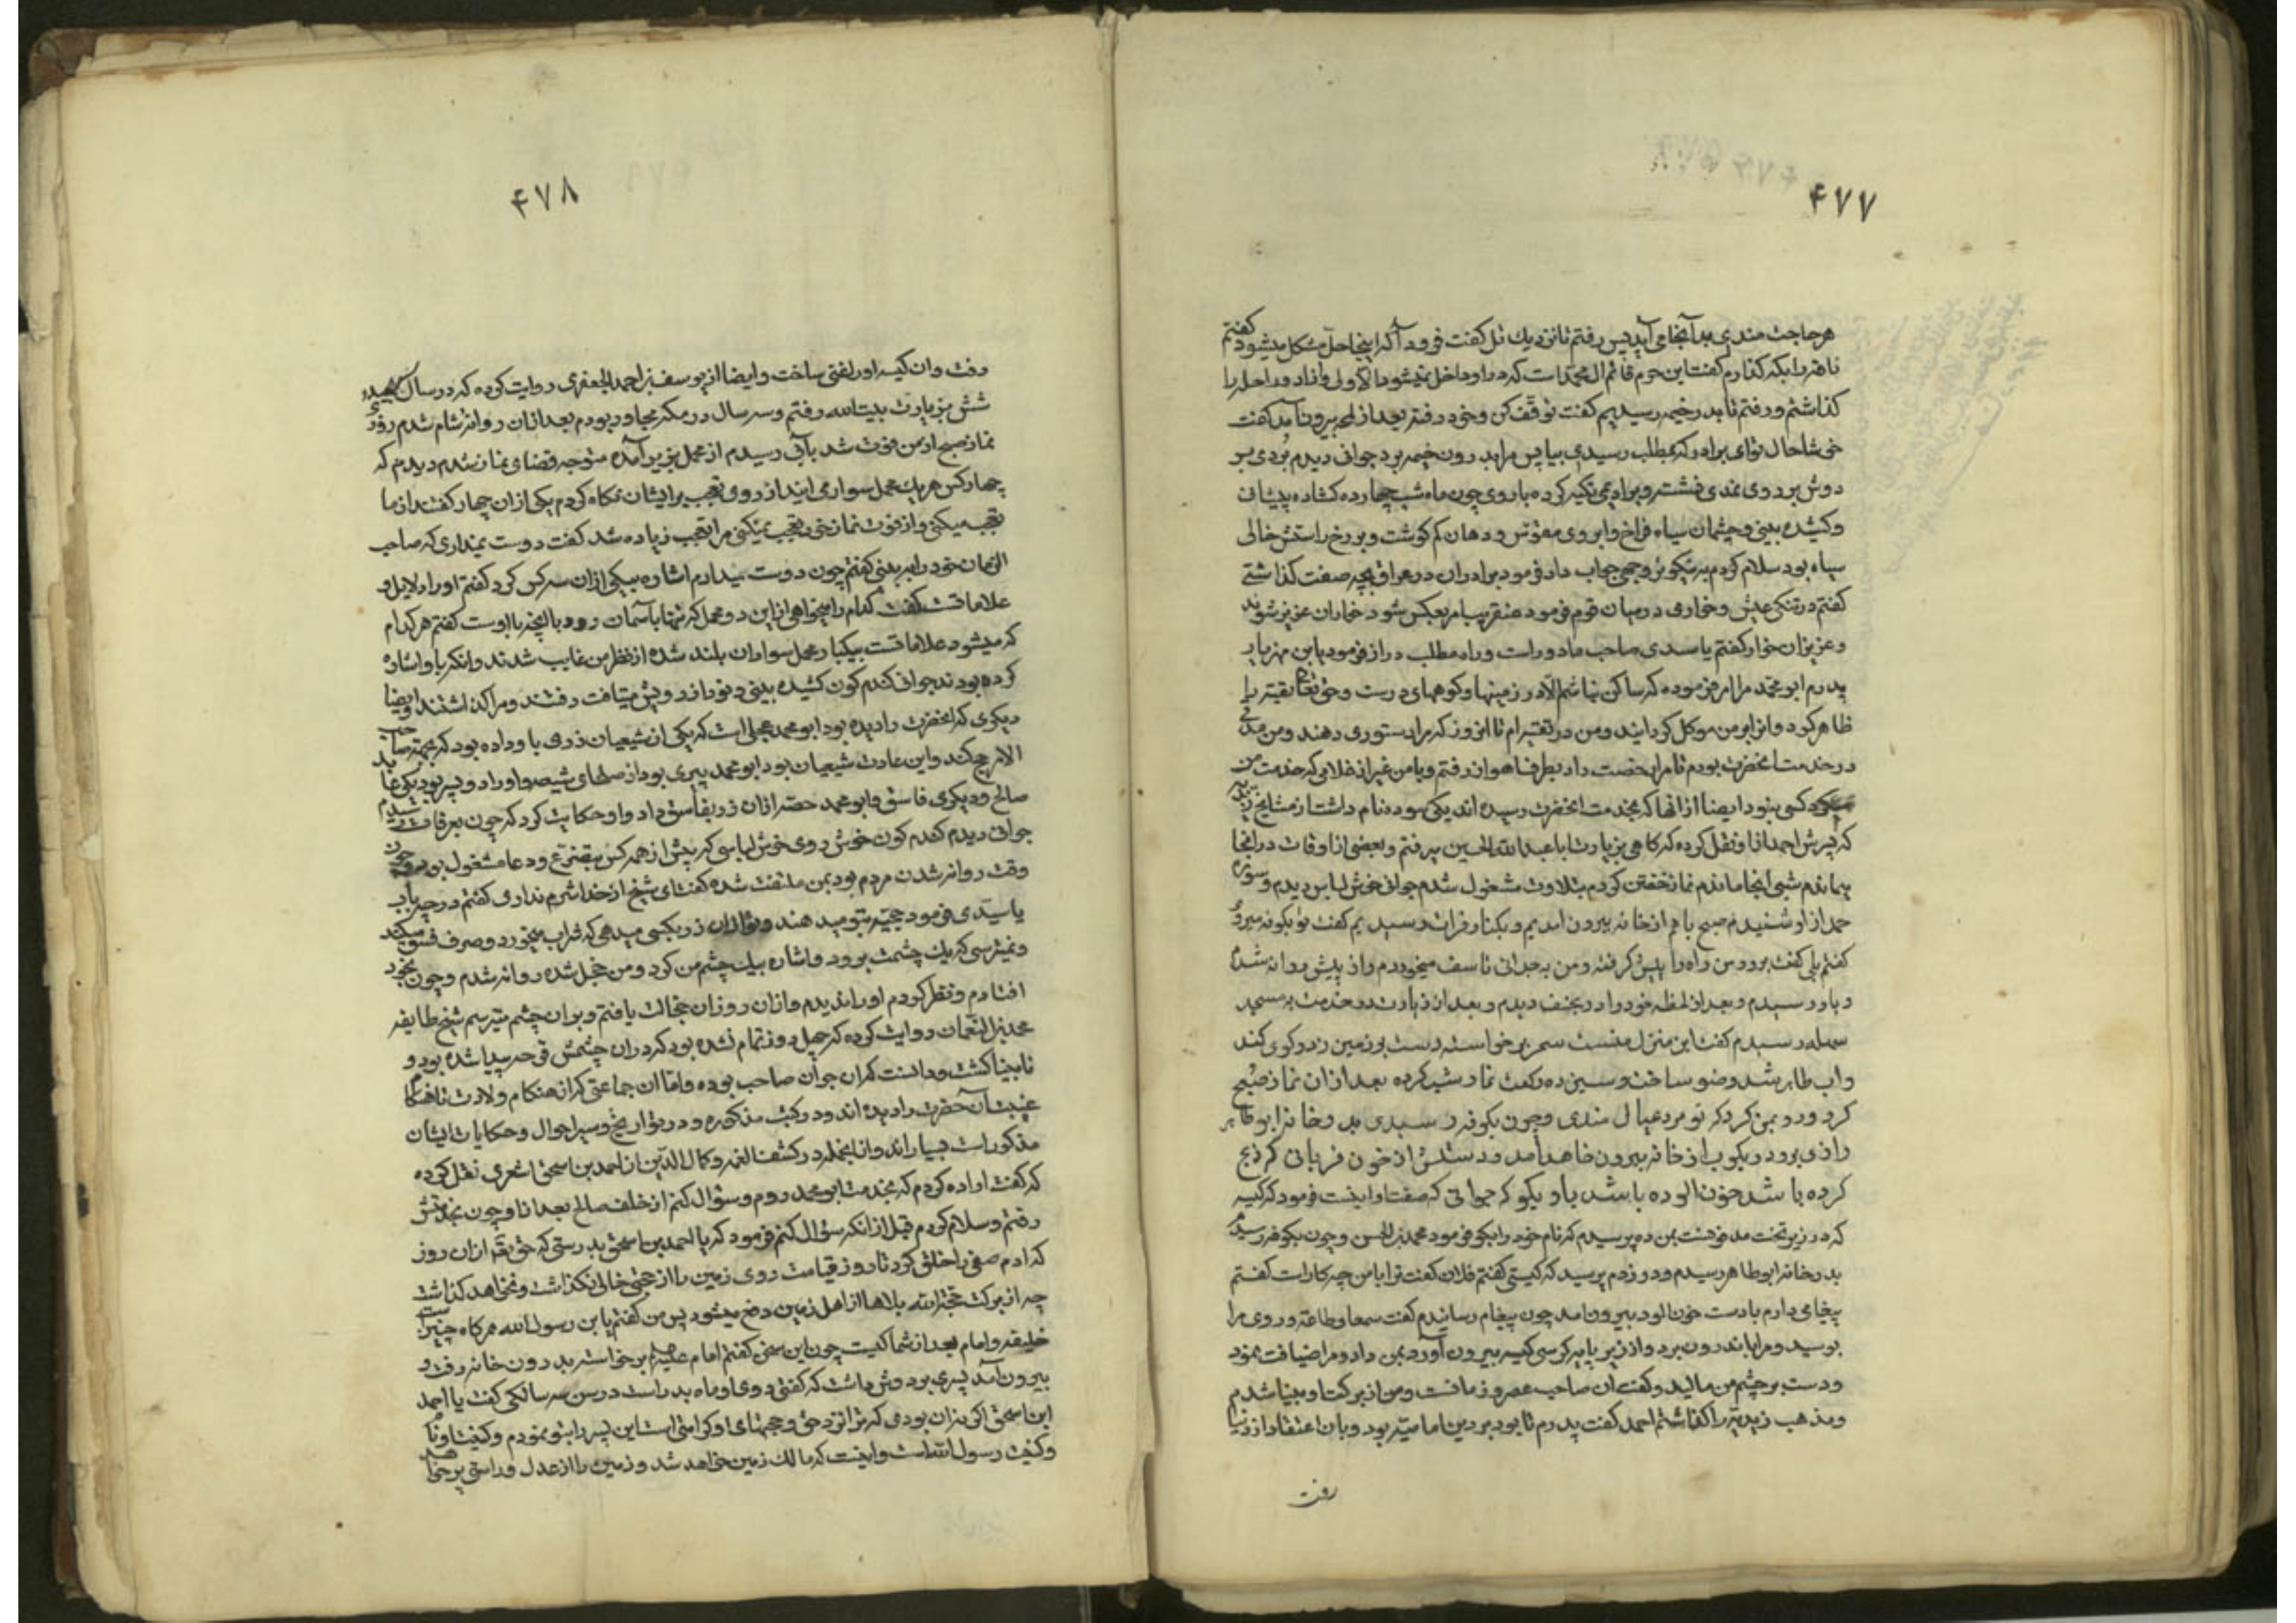 ۴۷۷
هر حاجت مندی بدآنجا می آید پس رفتم تا نزدیك تل گفت فرود آ که اینجا حل مشکل میشود گفتم
ناقه را بکه گذارم گفت این حرم قائم ال محمد است که در او داخل نمیشود الا ولی وانا در راحله را
گذاشتم و رفتم تا بدر خیمه رسیدیم گفت توقف کن و خود رفته بعد از لمحه بیرون آمد گفت
خوشا حال تو ای برادر که بمطلب رسیدی بیا پس مرا بدرون خیمه برد جوانی دیدم بردی بر
دوش بر روی نمدی نشسته و بر ادیمی تکیه کرده با روی چون ماه شب چهارده گشاده پیشانی
و کشیده بینی و چشمان سیاه فراخ و ابروی مقوس و دهان کم گوشت و بر رخ راستش خالی
سیاه بود سلام کردم بر نیکوتر وجهی جواب داد فرمود برادران در عراق بچه صفت گذاشتی
گفتم در تنکی عیش و خواری در میان قوم فرمود عنقریب امر بعکس شود خواران عزیز شوند
و عزیزان خوار گفتم یا سیدی صاحب ما دور است و راه مطلب دراز فرمود یا بن مهزیار
پدرم ابو محمد مرا امر فرموده که ساکن نباشم الا در زمینها و کوههای درشت و حق تعالی تقیه را
ظاهر کرد وانرا بر من موکل گردانید و من در تقیه ام تا انروز که مرا دستوری دهند و من مدتی
در خدمت انحضرت بودم تا مرا رخصت داد بطرف اهواز رفتم و با من غیر از غلامی که خدمت من
کسی نبود ایضا از انها که بخدمت انحضرت رسیده اند یکی سوده نام داشت از مشایخ زیدیه
که پسرش احمد از او نقل کرده که گاهی بزیارت ابا عبدالله الحسین میرفتم و بعضی از اوقات در انجا
میماندم شبی انجا ماندم نماز خفتن کردم بتلاوت مشغول شدم جوانی خوش لباس دیدم و سوره
حمد از او شنیدم صبح با هم از خانه بیرون امدیم و بکنار فرات رسیدیم گفت تو بکوفه میروی
گفتم بلی گفت برو من راه را پیش گرفته و من بر جدائی تاسف میخوردم و از پیش روانه شدم
و باو رسیدم و بعد از لحظه خود را در نجف دیدم و بعد از زیارت در خدمت به مسجد
سهله رسیدم گفت این منزل منست سحر برخواسته دست بر زمین زد و گوی کند
واب ظاهر شد وضو ساخت و سیزده رکعت نماز شب کرده بعد ازان نماز صبح
کرد و رو بمن کرد که تو مرد عیال مندی و چون بکوفه رسیدی بدر خانه ابو طاهر
رازی برو و در بکوب از خانه بیرون خواهد آمد و دستش از خون قربانی که ذبح
کرده باشد خون الوده باشد باو بگو که جوانی که صفت او اینست فرمود که کیسه
که در زیر تخت مدفونست بمن ده پرسیدم که نام خود را بگو فرمود محمد بن الحسن و چون بکوفه رسیدم
بدر خانه ابو طاهر رسیدم و در زدم پرسید که کیستی گفتم فلان گفت ترا با من چه کار است گفتم
پیغامی دارم با دست خون الود بیرون امد چون پیغام رساندم گفت سمعا و طاعة و روی مرا
بوسید و مرا باندرون برد و از زیر پایه کرسی کیسه بیرون آورد بمن داد و مرا ضیافت نمود
و دست بر چشم من مالید و گفت ان صاحب عصر و زمانست و من از برکت او بینا شدم
و مذهب زیدیه را گذاشتم احمد گفت پدرم تا بود بر دین امامیه بود و بان اعتقاد از دنیا
رفت
۴۷۸
رفت وان کیسه او را غنی ساخت و ایضا از یوسف بن احمد الجعفری روایت کرده که در سال سیصد و
شش بزیارت بیت الله رفتم و سه سال در مکه مجاور بودم بعد ازان روانه شام شدم روزی
نماز صبح از من فوت شد بآبی رسیدم از محمل بزیر آمده متوجه قضای نماز شدم دیدم که
چهار کس هر یك محمل سوار می ایند از روی تعجب بر ایشان نگاه کردم یکی از ان چهار گفت از ما
تعجب میکنی و از فوت نماز خود تعجب نمیکنی مرا تعجب زیاده شد گفت دوست میداری که صاحب
الزمان خود را ببینی گفتم چون دوست میدارم اشاره بیکی از ان سه کس کرد گفتم او را دلایل و
علاماتست گفت کدام را میخواهی از این دو محمل که تنها بآسمان رود یا انچه با اوست گفتم هر کدام
که میشود علاماتست بیکبار محمل سواران بلند شده از نظر من غایب شدند وانکه باو اشاره
کرده بودند جوانی گندم گون کشیده بینی و نور از رویش میتافت رفتند و مرا گذاشتند ایضا
دیگری که انحضرت را دیده بود ابو محمد عجلی است که یکی از شیعیان زری باو داده بود که بجهة صاحب
الامر حج کند و این عادت شیعیان بود ابو محمد پیری بود از صلحای شیعه و او را دو پسر بود یکی عابد
صالح و دیگری فاسق و ابو محمد حصه ازان زر بفاسق داد و او حکایت کرد که چون بعرفات رسیدم
جوانی دیدم گندم گون خوش روی خوش لباسی که بیش از همه کس بتضرع و دعا مشغول بود و چون
وقت روانه شدن مردم بود بمن ملتفت شده گفت ای شیخ از خدا شرم نداری گفتم در چه باب
یا سیدی فرمود حجة بتو میدهند و تو ازان زر بکسی میدهی که شراب میخورد و صرف فسق میکند
و نمیترسی که یك چشمت برود و اشاره بیك چشم من کرد و من خجل شده روانه شدم و چون بخود
افتادم و نظر کردم او را ندیدم و ازان روز ازان خجالت یافتم و بر ان چشم میترسم شیخ طایفه
محمد بن النعمان روایت کرده که چهل روز تمام نشده بود که دران چشمش قرحه پیدا شده بود و
نابینا گشت و دانست که ان جوان صاحب بوده و اما ان جماعتی که از هنگام ولادت تا هنگام
غیبت آنحضرت را دیده اند و در کتب مذکوره و در تواریخ و سیر احوال و حکایات ایشان
مذکورات بسیار اند و از انجمله در کشف الغمه و کمال الدین از احمد بن اسحق اشعری نقل کرده
که گفت اراده کردم که بخدمت ابو محمد روم و سؤال کنم از خلف صالح بعد از او چون بخدمتش
رفتم و سلام کردم قبل از انکه سؤال کنم فرمود که یا احمد بن اسحق بدرستی که حق تعالی ازان روز
که ادم صفی را خلق کرد تا روز قیامت روی زمین را از حجتی خالی نگذاشت و نخواهد گذاشت
چه از برکت حجة الله بلاها از اهل زمین دفع میشود پس من گفتم یا بن رسول الله هر گاه چنین است
خلیفه و امام بعد از شما کیست چون این سخن گفتم امام علیه السلام برخواسته بدرون خانه رفت و
بیرون آمد پسری بر دوش داشت که گفتی روی او ماه بدر است در سن سه سالگی گفت یا احمد
ابن اسحق اگر نه ان بودی که ترا نزد حق و حجتهای او کرامتی است این پسر را بتو ننمودم و کنیت او نام
و کنیت رسول الله است و اینست که مالك زمین خواهد شد و زمین را از عدل و راستی پر خواهد